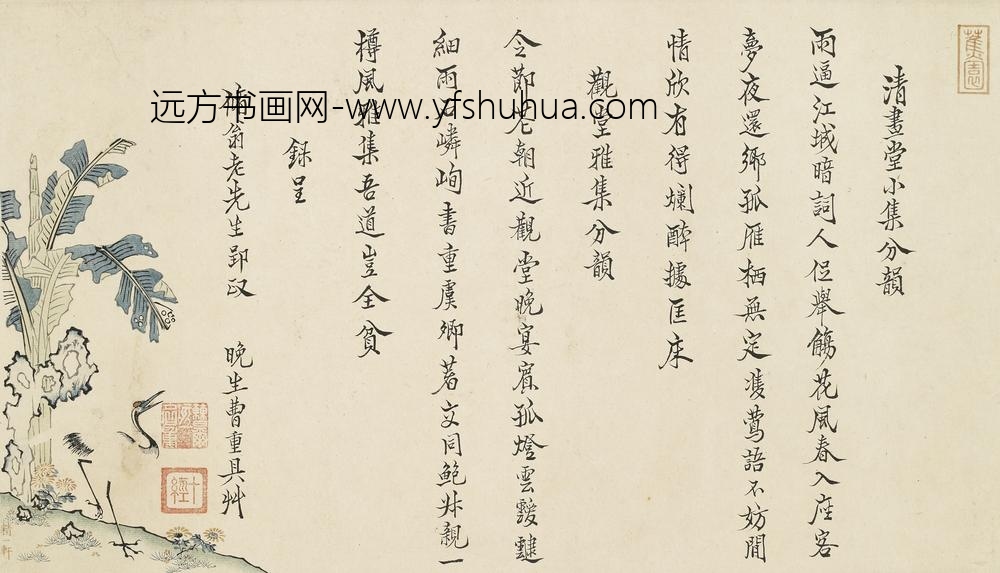 蕉園
清書堂小集分韻
雨逼江城暗詞人促舉觴花風春入座客
夢夜還鄉孤雁栖無定隻鶯語不妨間
情欣有得爛醉據匡床
觀堂雅集分韻
令節花朝近觀堂晚宴賓孤燈雲靉靆
細雨石嶙峋書重虞卿著文同鮑叔親一
樽風雅集吾道豈全貧
錄呈
翁老先生郢政 晚生曹重具艸
远方书画网-www.yfshuhua.com
十經